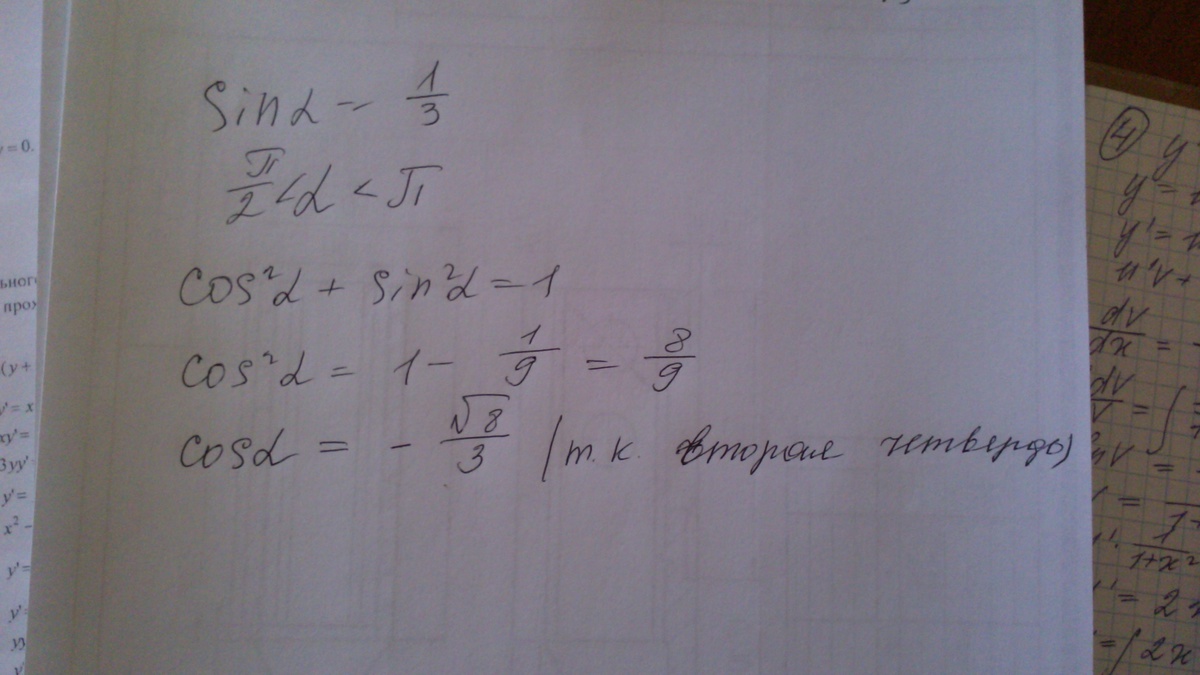 sin α = 1/3
π/2 < α < π
cos²α + sin²α = 1
cos²α = 1 - 1/9 = 8/9
cos α = - √8/3 (т.к. вторая четверть)
y = 0.
(y +
y' = x
xy' =
3yy'
y' =
x² -
y' =
y' =
yy
④ y'
y =
y' =
u'v +
dv/dx = -
dv/v = ∫
1/1+x²
= 2
= ∫ 2x